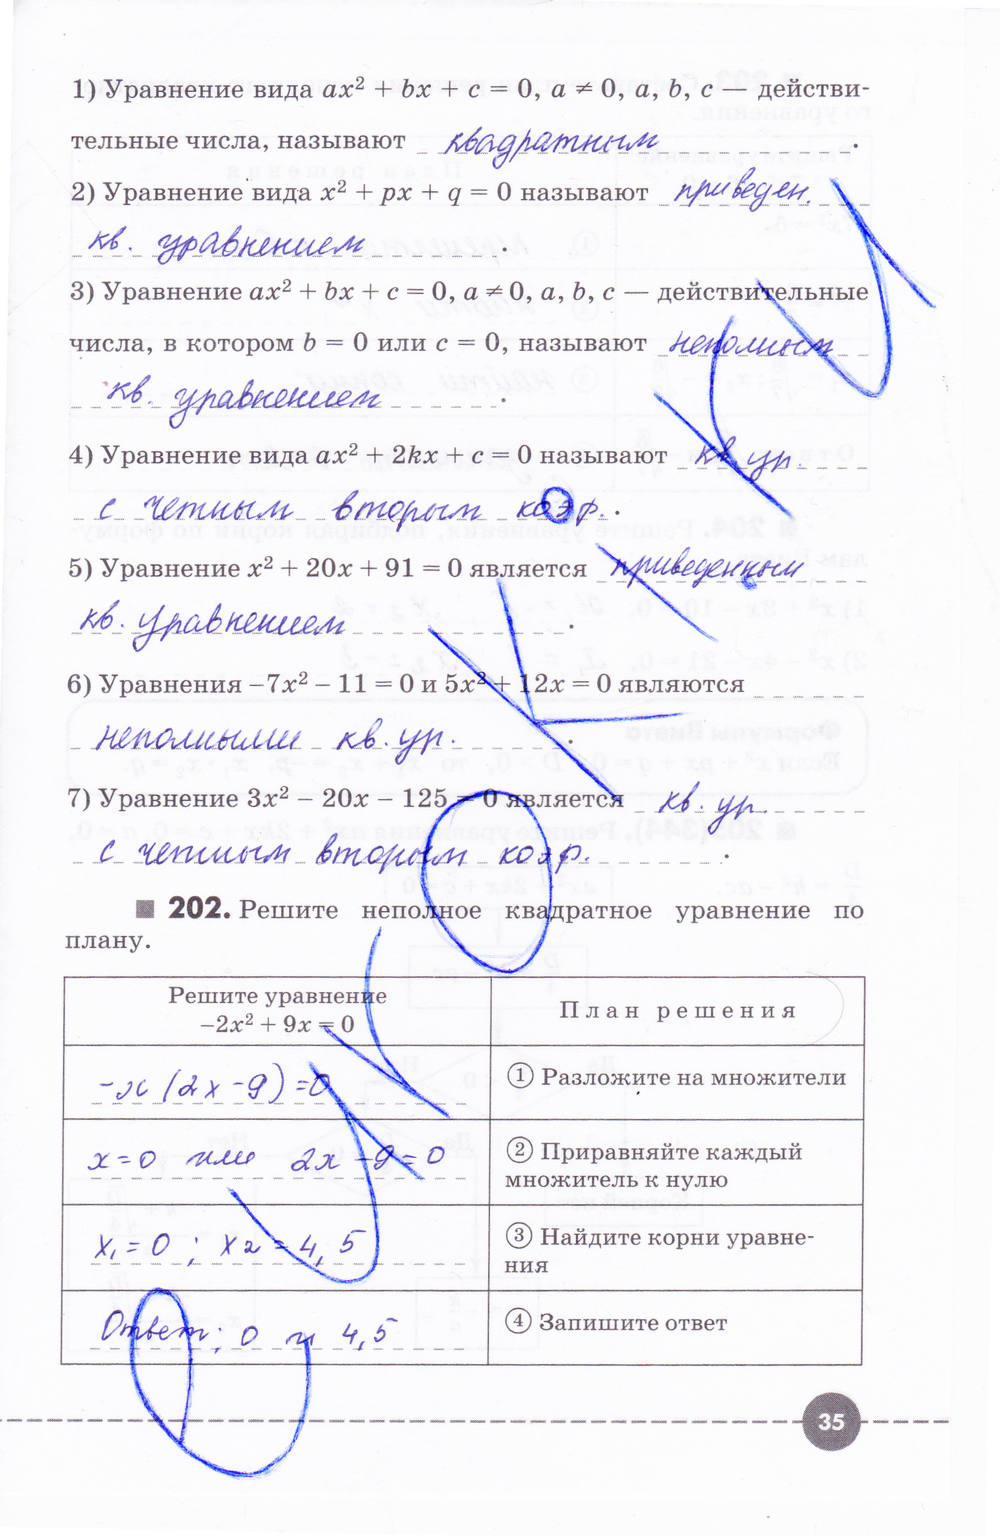 1) Уравнение вида ax² + bx + c = 0, a ≠ 0, a, b, c — действи-
тельные числа, называют квадратным.
2) Уравнение вида x² + px + q = 0 называют приведен.
кв. уравнением.
3) Уравнение ax² + bx + c = 0, a ≠ 0, a, b, c — действительные
числа, в котором b = 0 или c = 0, называют неполным
кв. уравнением.
4) Уравнение вида ax² + 2kx + c = 0 называют кв. ур.
с четным вторым коэф..
5) Уравнение x² + 20x + 91 = 0 является приведенным
кв. уравнением.
6) Уравнения −7x² − 11 = 0 и 5x² + 12x = 0 являются
неполными кв. ур.
7) Уравнение 3x² − 20x − 125 = 0 является кв. ур.
с четным вторым коэф.
202. Решите неполное квадратное уравнение по
плану.
Решите уравнение
−2x² + 9x = 0
План решения
-x(2x-9)=0
① Разложите на множители
x=0 или 2x-9=0
② Приравняйте каждый
множитель к нулю
x₁=0; x₂=4,5
③ Найдите корни уравне-
ния
Ответ: 0 и 4,5
④ Запишите ответ
35